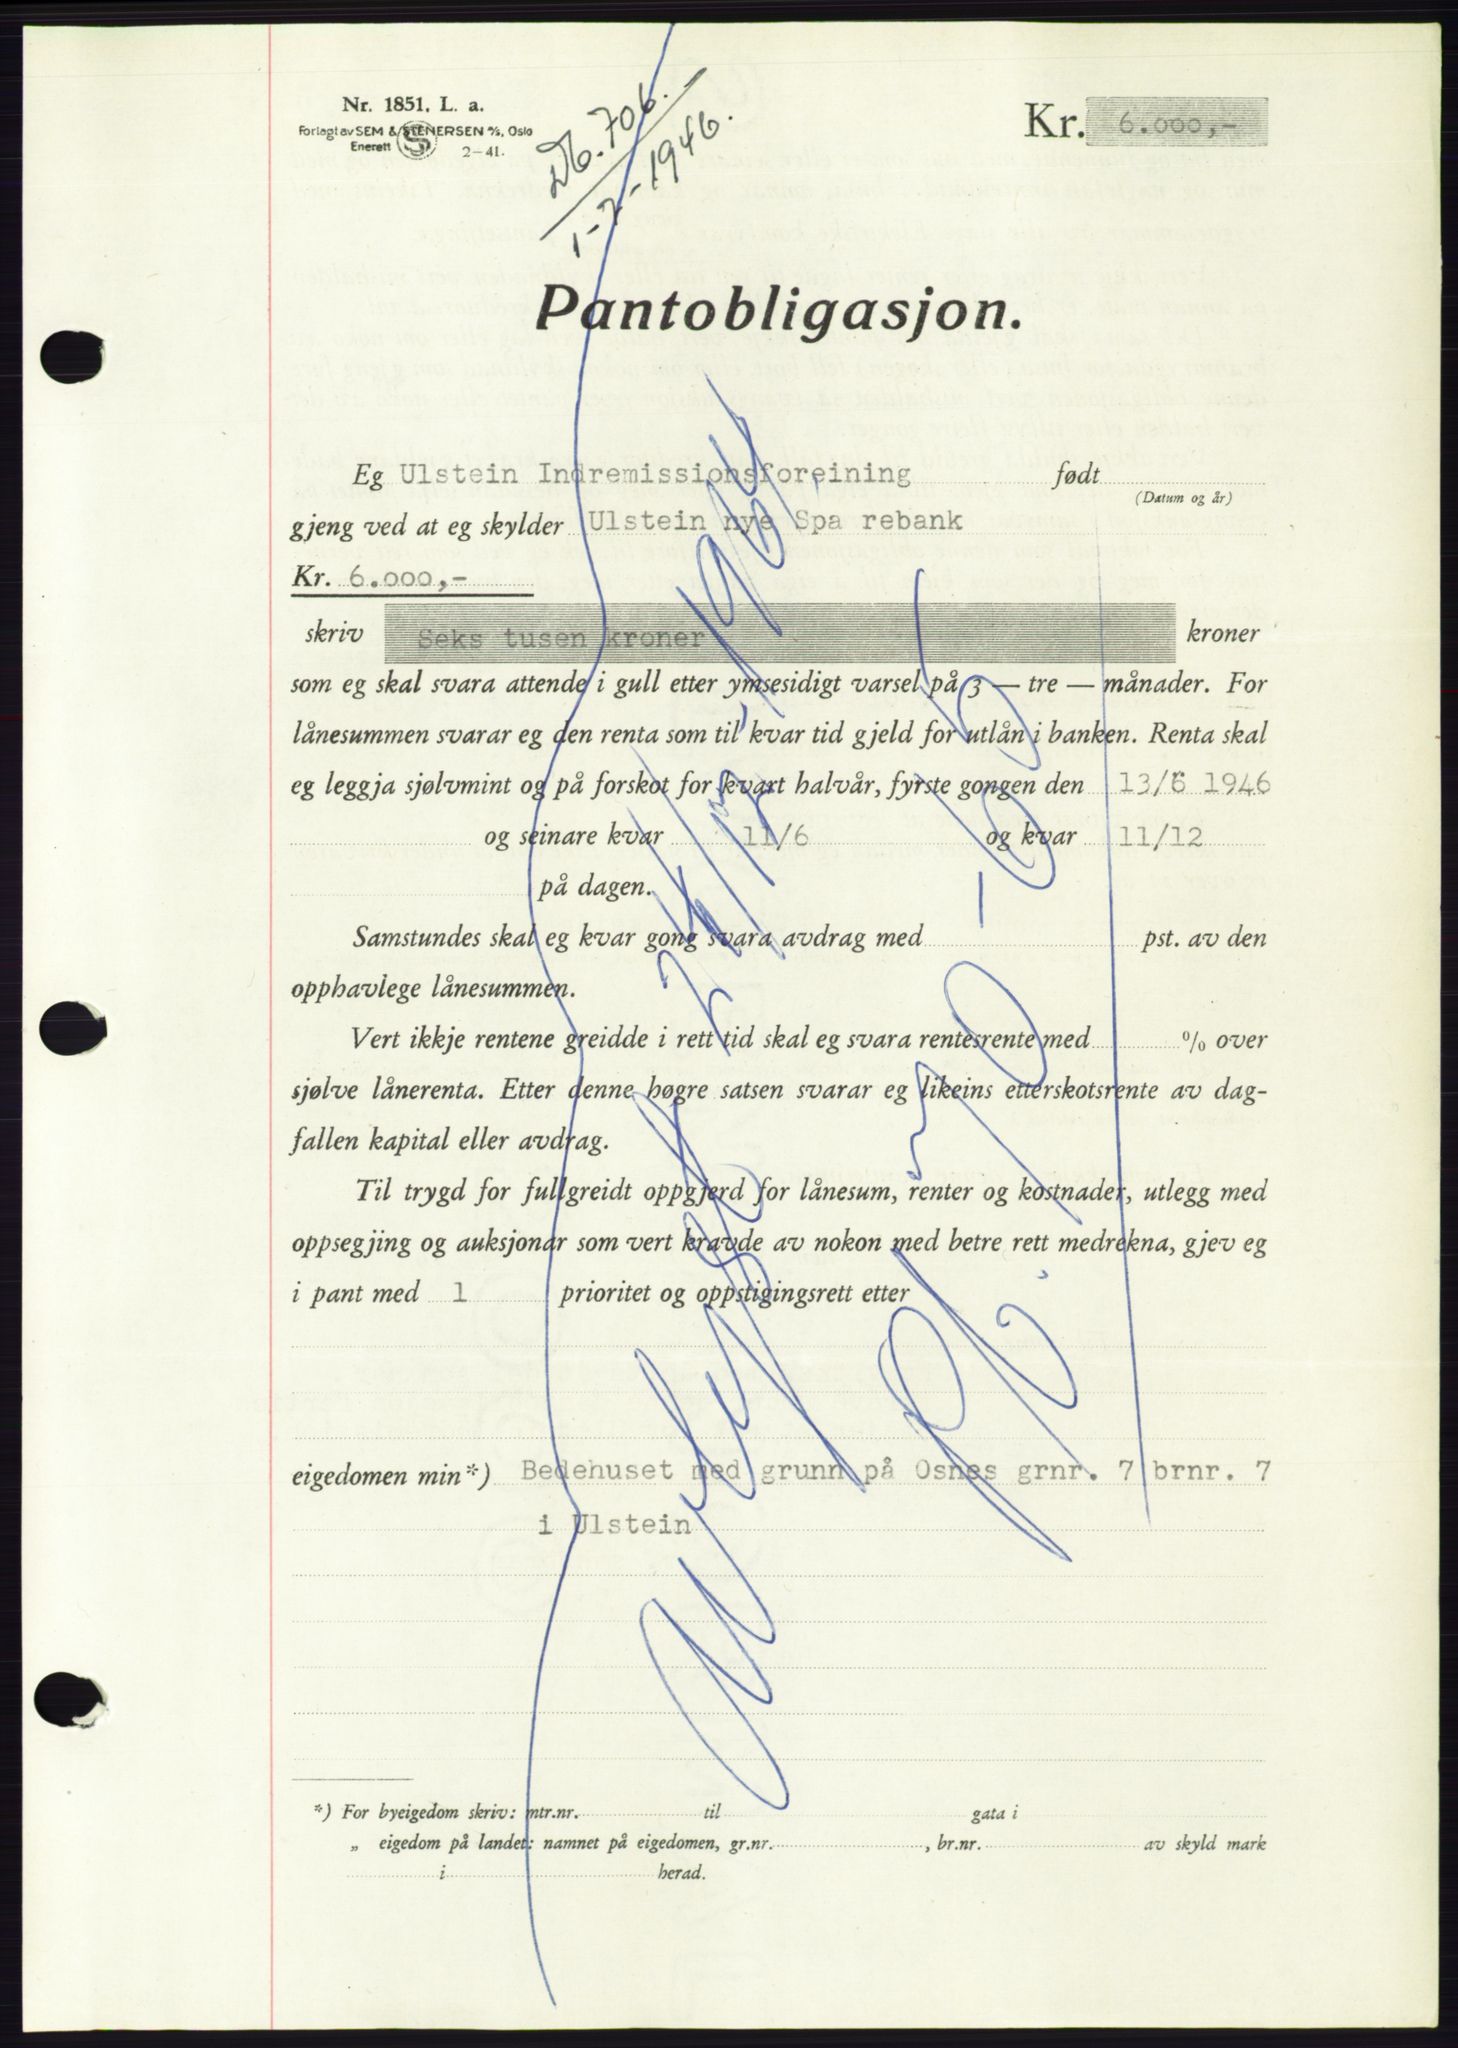 Nr. 1851. L. a.
Forlagt av SEM & STENERSEN A/S, Oslo
Enerett 2-41.
Db. 706.
1-7-1946.
Kr. 6.000,-
Pantobligasjon.
Eg Ulstein Indremissionsforeining født
(Datum og år)
gjeng ved at eg skylder Ulstein nye Spa rebank
Kr. 6.000,-
skriv Seks tusen kroner kroner
som eg skal svara attende i gull etter ymsesidigt varsel på 3 — tre — månader. For
lånesummen svarar eg den renta som til kvar tid gjeld for utlån i banken. Renta skal
eg leggja sjølvmint og på forskot for kvart halvår, fyrste gongen den 13/6 1946
og seinare kvar 11/6 og kvar 11/12
på dagen.
Samstundes skal eg kvar gong svara avdrag med pst. av den
opphavlege lånesummen.
Vert ikkje rentene greidde i rett tid skal eg svara rentesrente med % over
sjølve lånerenta. Etter denne høgre satsen svarar eg likeins etterskotsrente av dag-
fallen kapital eller avdrag.
Til trygd for fullgreidt oppgjerd for lånesum, renter og kostnader, utlegg med
oppsegjing og auksjonar som vert kravde av nokon med betre rett medrekna, gjev eg
i pant med 1 prioritet og oppstigingsrett etter
eigedomen min*) Bedehuset med grunn på Osnes grnr. 7 brnr. 7
i Ulstein
Avlyst
*) For byeigedom skriv: mtr.nr. til gata i
„ eigedom på landet: namnet på eigedomen, gr.nr. , br.nr. av skyld mark
i herad.